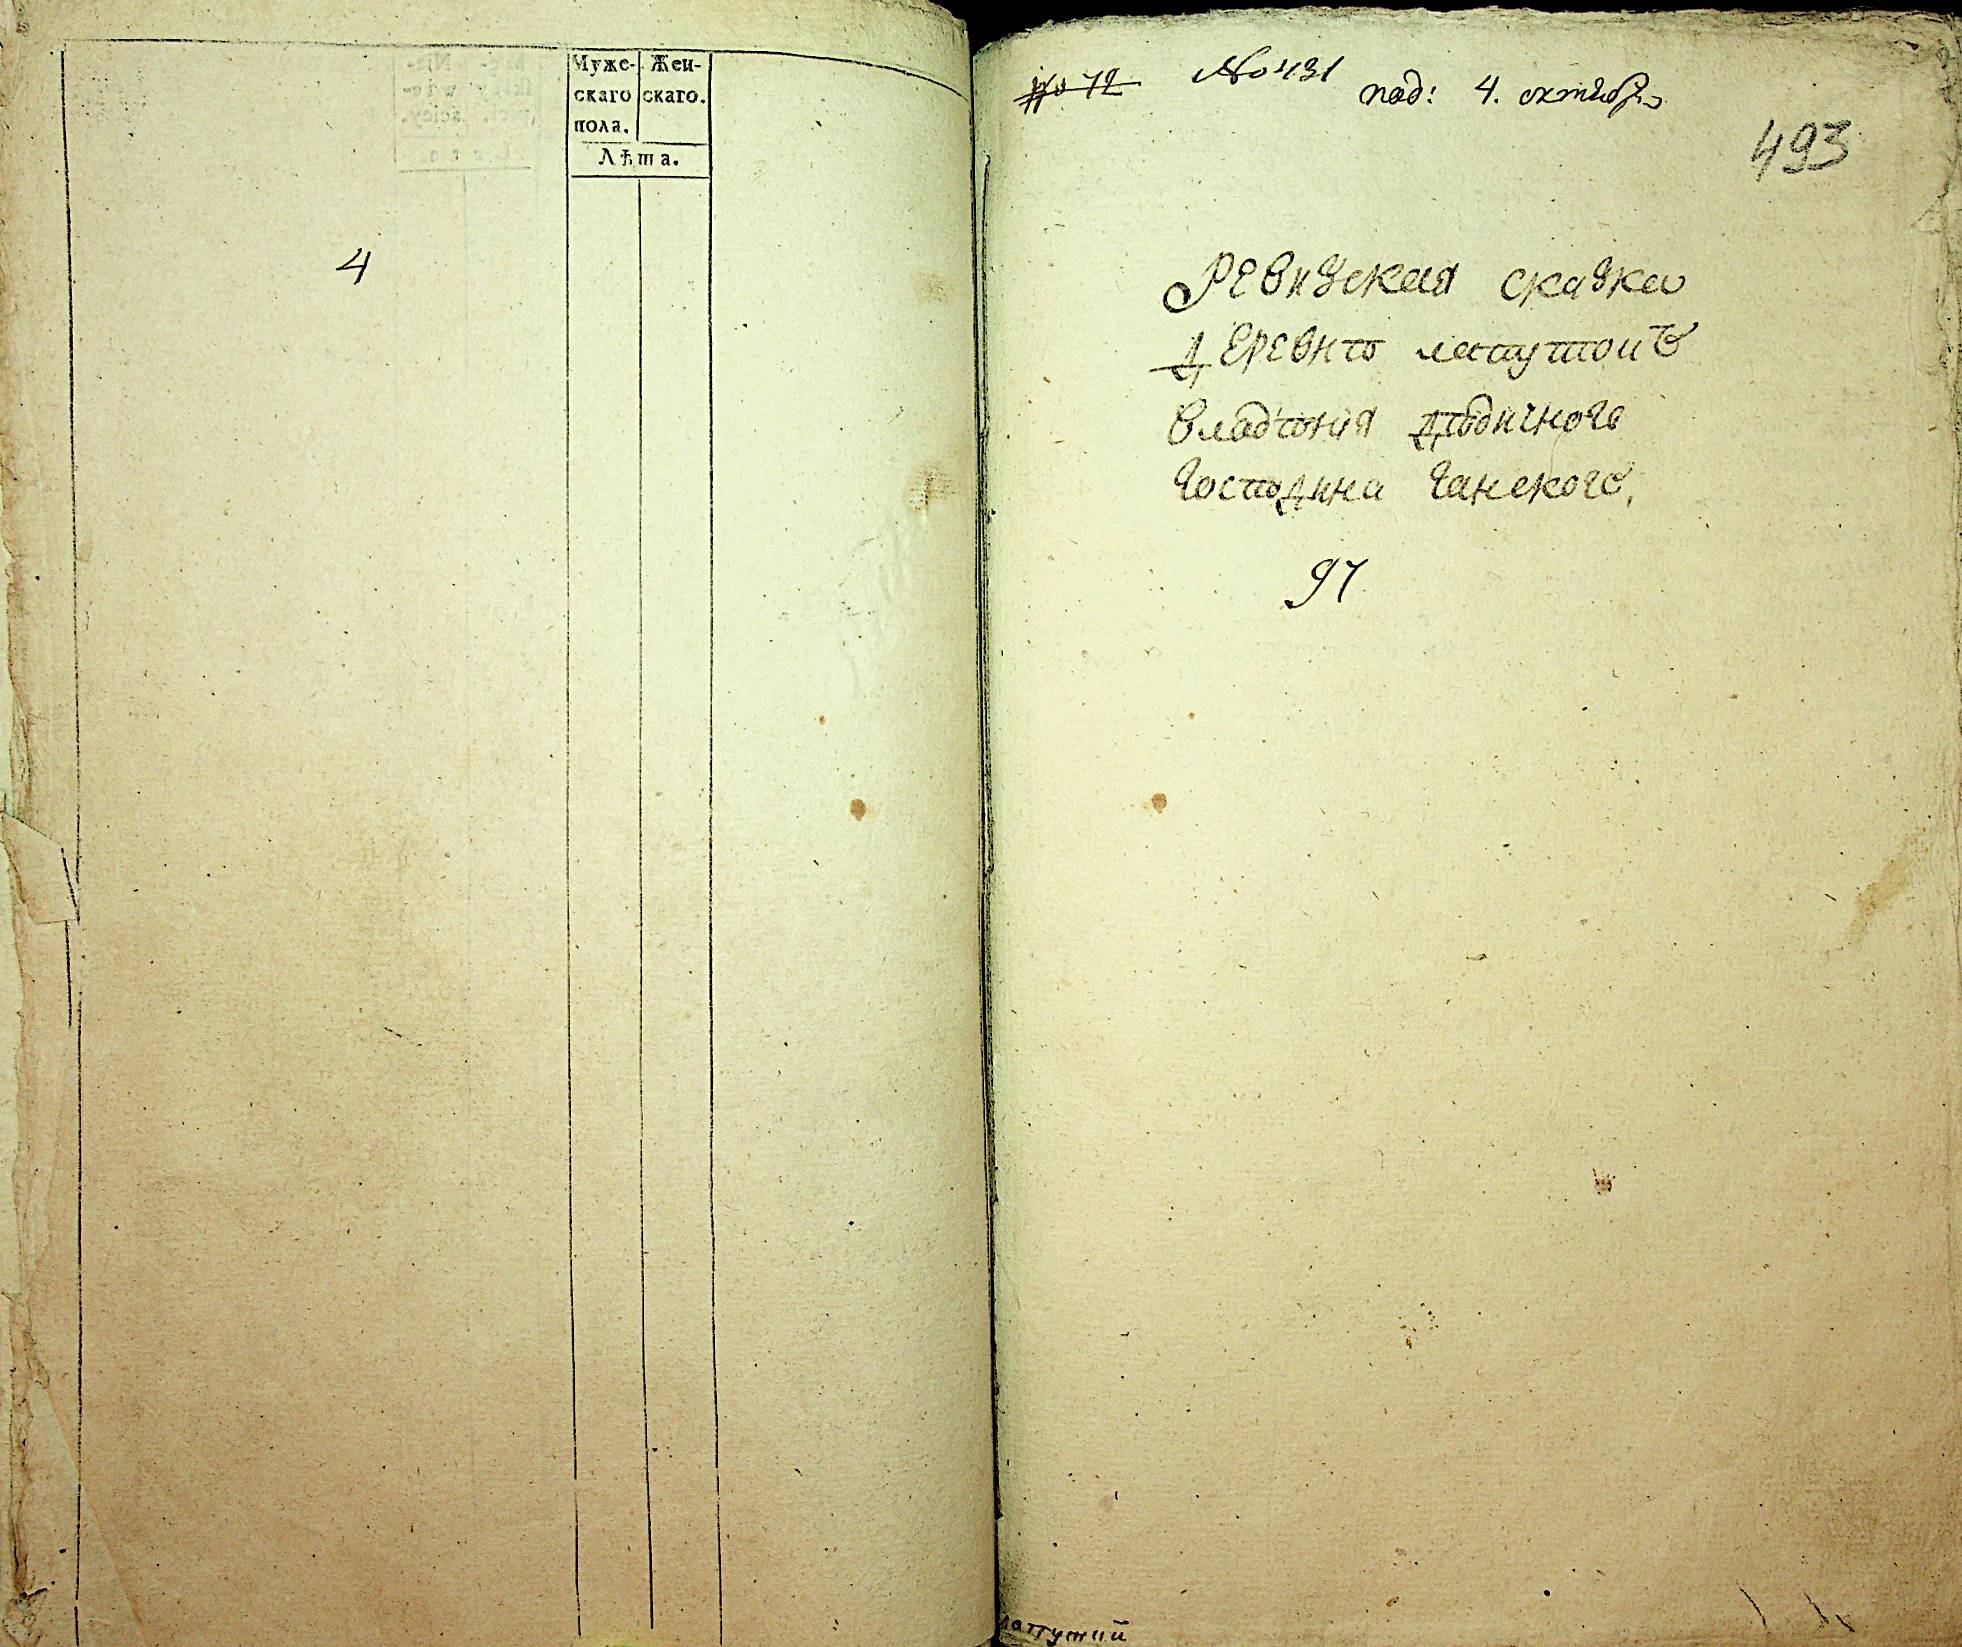 Муже-
скаго
пола.
Жен-
скаго.
Лѣта.
4
№ 72
№ 431
под: 4. октября
493
Ревизская сказка
деревнѣ лапутокъ
владѣния дѣдичного
Господина Ганского,
97